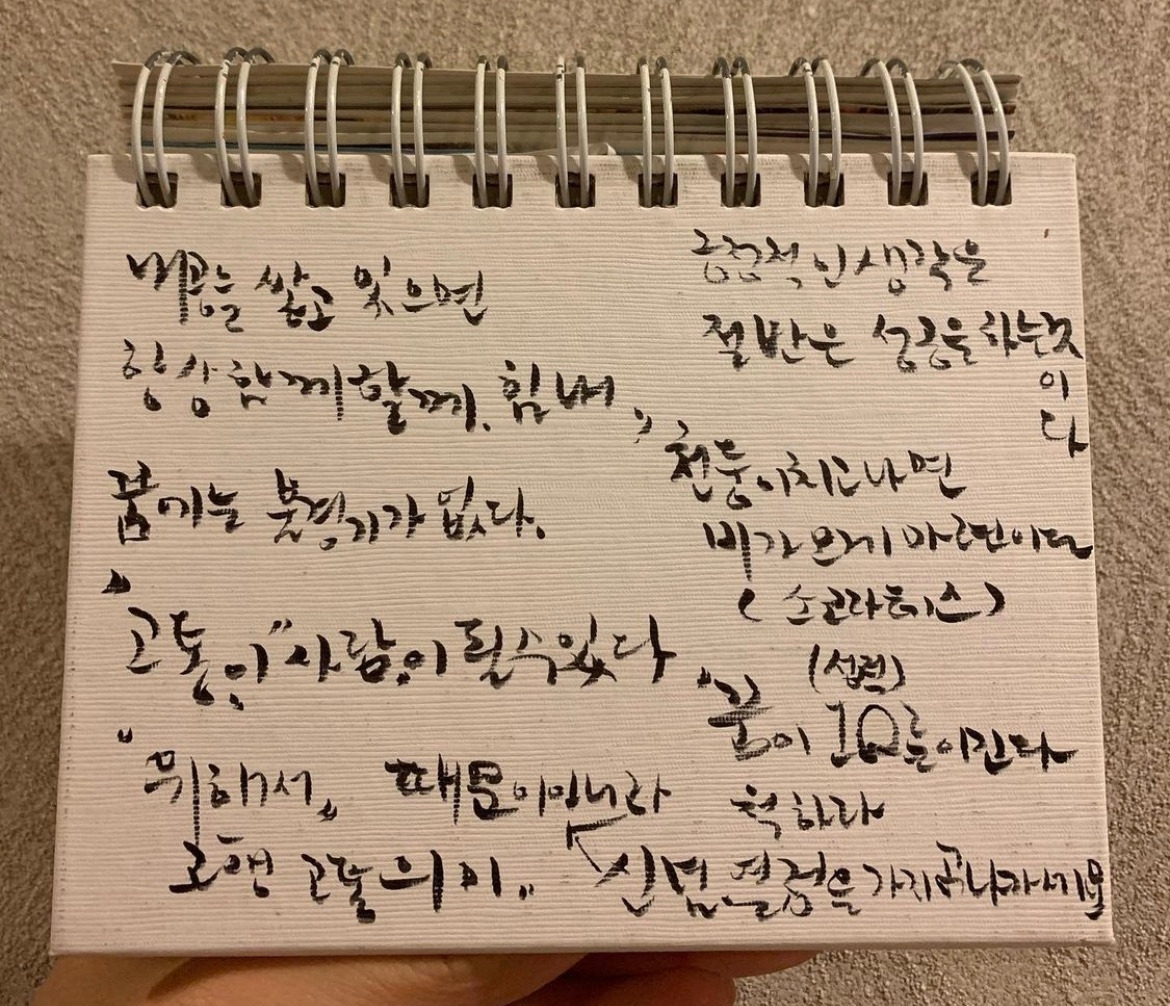 내공을 쌓고 있으면
항상 함께 할께. 힘내
꿈에는 불경기가 없다.
"고통이" 사람이 될 수 있다
"위해서" 때문이 아니라
고통의 미"
긍정적인 생각은
절반은 성공을 하는 것
이
다
천둥이 치고 나면
비가 오게 마련이
(소크라테스)
(성적)
"꿈이 IQ를 이긴다
척하라
신념, 열정을 가지고 나가세요